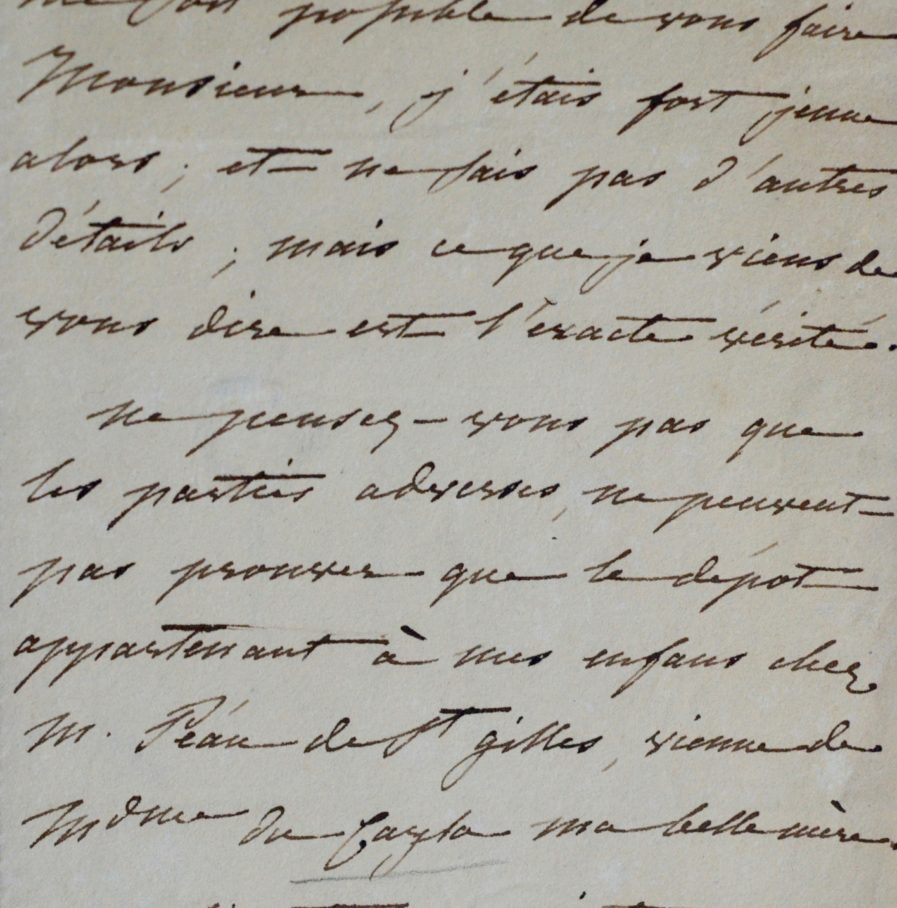 possible de vous faire
Monsieur, j'étais fort jeune
alors; et ne sais pas d'autres
détails; mais ce que je viens de
vous dire est l'exacte vérité.
ne pensez-vous pas que
les parties adverses, ne peuvent
pas prouver que le dépot
appartenant à mes enfans chez
M. Péan de St gilles, vienne de
Mdme du Cayla ma belle mère.